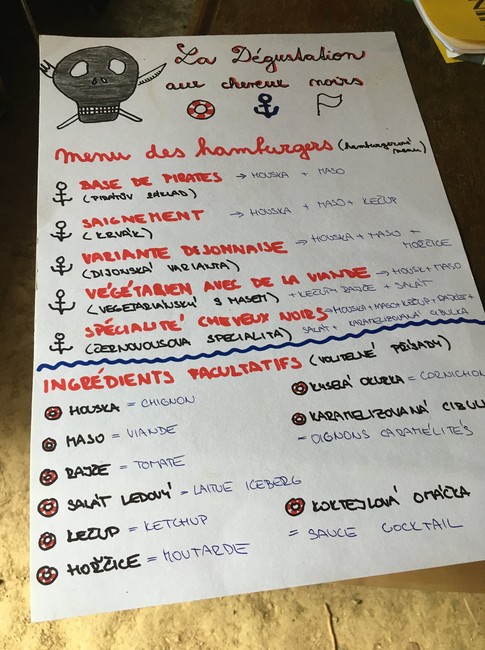 La Dégustation
aux cheveux noirs
menu des hamburgers (hamburgerové menu)
BASE DE PIRATES → HOUSKA + MASO
(PIRÁTŮV ZÁKLAD)
SAIGNEMENT → HOUSKA + MASO + KEČUP
(KRVÁK)
VARIANTE DIJONNAISE → HOUSKA + MASO + HOŘČICE
(DIJONSKÁ VARIANTA)
VÉGÉTARIEN AVEC DE LA VIANDE → HOUSK+MASO
(VEGETARIÁNSKÝ S MASEM) +KEČUP+ RAJČE + SALÁT
SPÉCIALITÉ CHEVEUX NOIRS → HOUSKA+MASO+KEČUP+RAJČE+
(ČERNOVOUSOVA SPECIALITA) SALÁT + KARAMELIZOVANÁ CIBULKA
INGRÉDIENTS FACULTATIFS (VOLITELNÉ PŘÍSADY)
HOUSKA = CHIGNON
MASO = VIANDE
RAJČE = TOMATE
SALÁT LEDOVÝ = LAITUE ICEBERG
KEČUP = KETCHUP
HOŘČICE = MOUTARDE
KYSELÁ OKURKA = CORNICHON
KARAMELIZOVANÁ CIBUL
= OIGNONS CARAMÉLITÉS
KOKTEJLOVÁ OMÁČKA
= SAUCE COCKTAIL